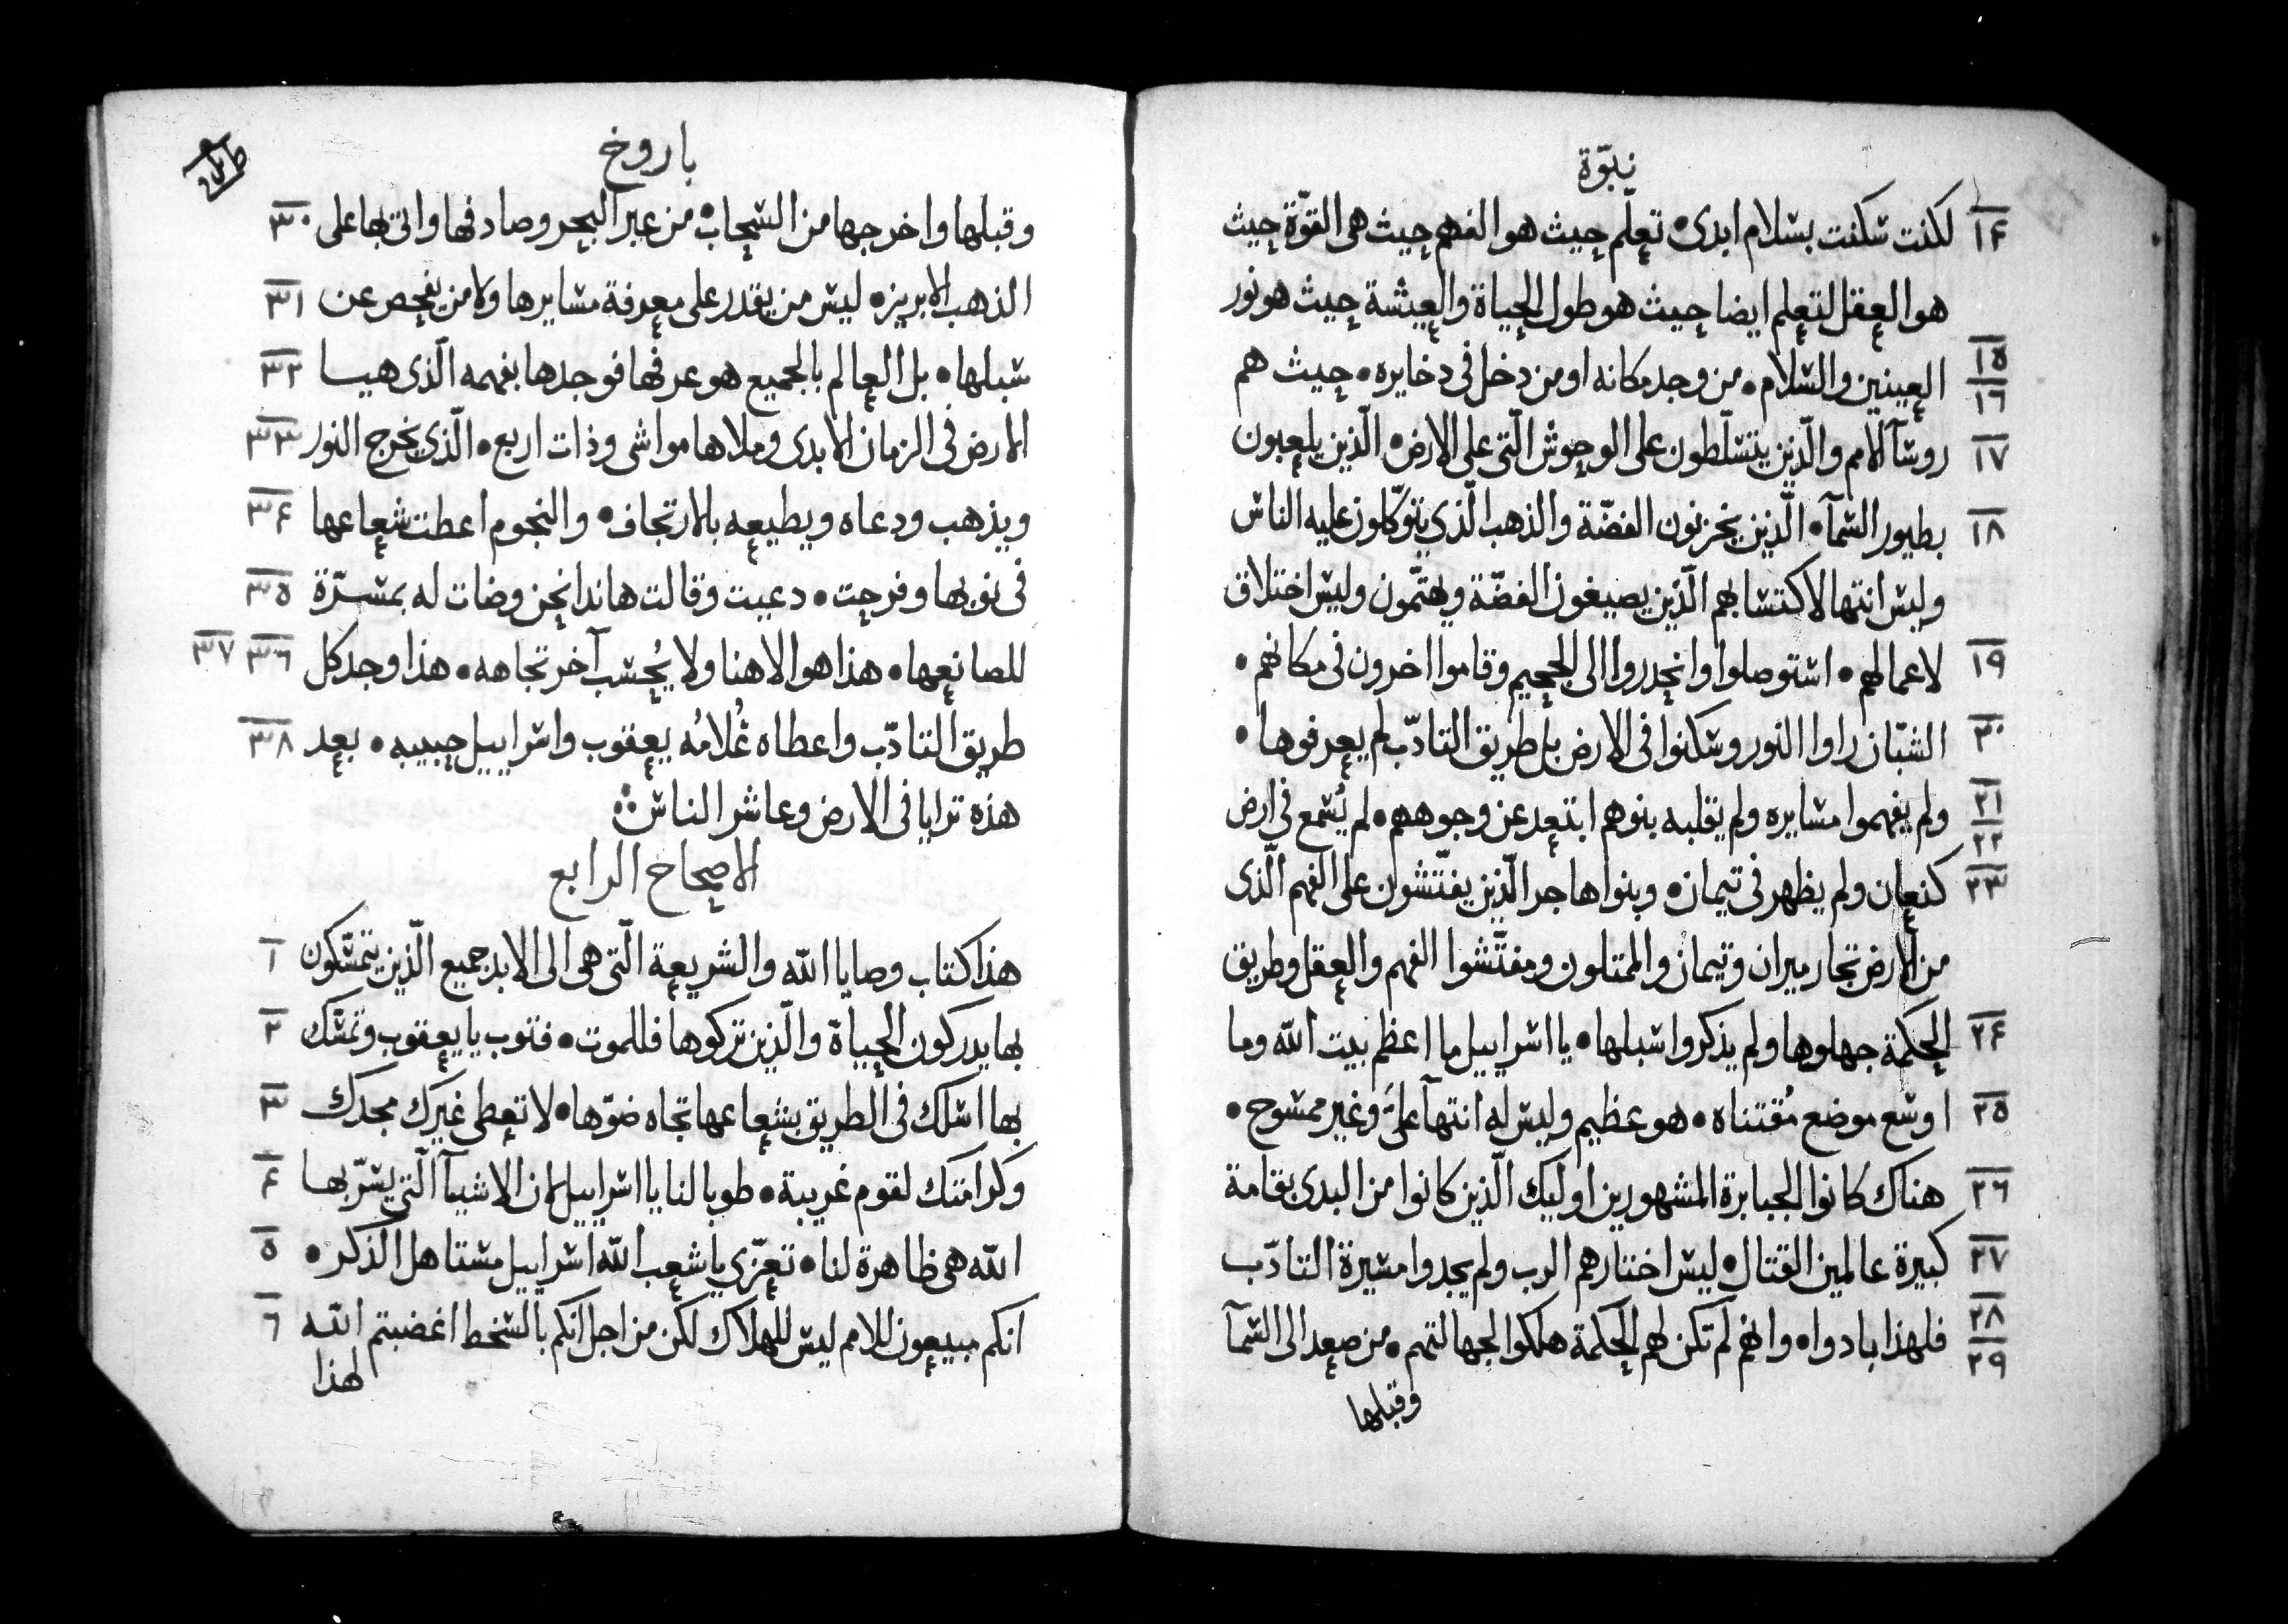 نبوّة
١٤ لكنت سكنت بسلام ابدى • تعلّم حيث هو الفهم حيث هى القوّة حيث
هو العقل لتعلم ايضا حيث هو طول الحياة والعيشة حيث هو نور
١٥ ١٦ العينين والسلام • من وجد مكانه او من دخل فى دخايره • حيث هم
١٧ روسآ الامم والّذين يتسلّطون على الوحوش الّتى على الارض • الّذين يلعبون
١٨ بطيور السمآ • الّذين يخزنون الفضّة والذهب الّذي يتوكّلون عليه الناس
وليس انتها لاكتسابهم الّذين يصيغون الفضّة ويهتمّون وليس اختلاق
١٩ لاعمالهم • استوصلوا وانحدروا الى الجحيم وقاموا اخرون فى مكانهم •
٢٠ الشبّان راوا النور وسكنوا فى الارض بل طريق التادّب لم يعرفوها •
٢١ ٢٢ ولم يفهموا مسايره ولم يقلبه بنوهم ابتعد عن وجوههم • لم يُسمع فى ارض
٢٣ كنعان ولم يظهر فى تيمان • وبنوا هاجر الّذين يفتّشون على الفهم الّذى
من الارض تجار ميران وتيمان والممتلون ومفتّشوا الفهم والعقل وطريق
٢٤ الحكمة جهلوها ولم يذكروا سبلها • يا اسراييل ما اعظم بيت اللّه وما
٢٥ اوسع موضع مُقتناه • هو عظيم وليس له انتهآ علىّ وغير ممسوح •
٢٦ هناك كانوا الجبابرة المشهورين اوليك الّذين كانوا من البدى بقامة
٢٧ كبيرة عالمين القتال • ليس اختارهم الرب ولم يجدوا مسيرة التادّب
٢٨ ٢٩ فلهذا بادوا • وانهم لم تكن لهم الحكمة هلكوا لجهالتهم • من صعد الى السمآ
وقبلها
باروخ
وقبلها واخرجها من السحاب • من عبر البحر وصادفها واتى بها على ٣٠
الذهب الابريز • ليس من يقدر على معرفة مسايرها ولا من يفحص عن ٣١
سبلها • بل العالم بالجميع هو عرفها فوجدها بفهمه الّذى هيا ٣٢
الارض فى الزمان الابدى وملاها مواشى وذات اربع • الّذي يخرج النور ٣٣
ويذهب ودعاه ويطيعه بالارتجاف • والنجوم اعطت شعاعها ٣٤
فى نوبها وفرحت • دعيت وقالت هاندا نحن وضات له بمسرّة ٣٥
للصانعها • هذا هو الاهنا ولا يُحسب آخر تجاهه • هذا وجد كل ٣٦ ٣٧
طريق التادّب واعطاه غُلامُه يعقوب واسراييل حبيبه • بعد ٣٨
هذه ترايا فى الارض وعاشر الناس
الاصحاح الرابع
هذا كتاب وصايا اللّه والشريعة الّتى هى الى الابد جميع الّذين يتمسّكون ١
بها يدركون الحياة والّذين تركوها فللموت • فتوب يا يعقوب وتمسّك ٢
بها اسلك فى الطريق بشعاعها تجاه ضوّها • لا تعطى غيرك مجدك ٣
وكرامتك لقوم غريبة • طوبا لنا يا اسراييل لان الاشيآ الّتى يسرّ بها ٤
اللّه هى ظاهرة لنا • تعزّي يا شعب اللّه اسراييل مستاهل الذكر • ٥
انكم مبيعون للامم ليس للهلاك لكن من اجل انّكم بالسخط اغضبتم اللّه ٦
لهذا